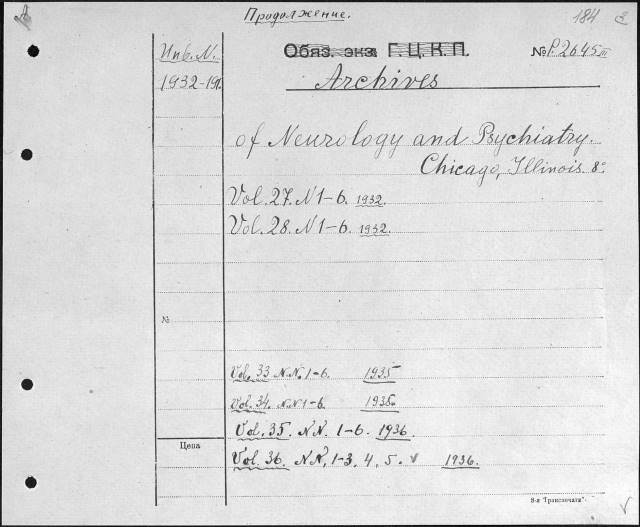 Продолжение.
184
Инв. N.
Обяз. экз. Г. Ц. К. П.
№ P.2645 III
1932-191.
Archives
of Neurology and Psychiatry.
Chicago, Illinois. 8°
Vol. 27. N 1-6. 1932.
Vol. 28. N 1-6. 1932.
№
Vol. 33 N.N. 1-6. 1935
Vol. 34. N.N 1-6. 1935.
Vol. 35. N N. 1-6. 1936.
Цена
Vol. 36. N N, 1-3, 4, 5. v 1936.
8-я "Транспечать"